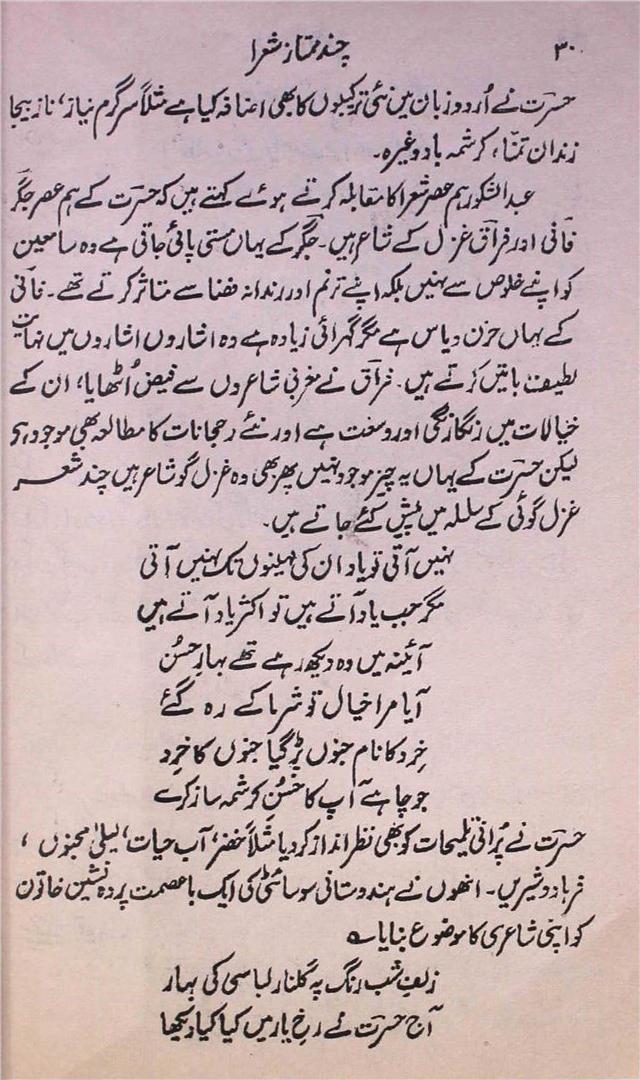 ۳۰ چند ممتاز شعرا
حسرتؔ نے اُردو زبان میں نئی ترکیبوں کا بھی اضافہ کیا ہے مثلاً سرگرم نیاز، ناز بیجا
زندان تمنّا، کرشمہ باد وغیرہ۔
عبدالشکور ہم عصر شعرا کا مقابلہ کرتے ہوئے کہتے ہیں کہ حسرتؔ کے ہم عصر جگرؔ
فانی اور فراقؔ غزل کے شاعر ہیں۔ جگرؔ کے یہاں مستی پائی جاتی ہے وہ سامعین
کو اپنے خلوص سے نہیں بلکہ اپنے ترنم اور رندانہ فضا سے متاثر کرتے تھے۔ فانیؔ
کے یہاں حزن و یاس ہے مگر گہرائی زیادہ ہے وہ اشاروں اشاروں میں نہایت
لطیف باتیں کرتے ہیں۔ فراقؔ نے مغربی شاعروں سے فیض اُٹھایا، ان کے
خیالات میں رنگارنگی اور وسعت ہے اور نئے رجحانات کا مطالعہ بھی موجود ہی
لیکن حسرتؔ کے یہاں یہ چیز موجود نہیں پھر بھی وہ غزل گو شاعر ہیں چند شعر
غزل گوئی کے سلسلہ میں پیش کئے جاتے ہیں۔
نہیں آتی تو یاد ان کی مہینوں تک نہیں آتی
مگر جب یاد آتے ہیں تو اکثر یاد آتے ہیں
آئینہ میں وہ دیکھ رہے تھے بہارِ حسُن
آیا مرا خیال تو شرما کے رہ گئے
خِرد کا نام جنوں پڑ گیا جنوں کا خِرد
جو چاہے آپ کا حُسنِ کرشمہ ساز کرے
حسرتؔ نے پُرانی تلمیحات کو بھی نظر انداز کر دیا مثلاً خضر، آب حیات، لیلیٰ مجنوں،
فرہاد و شیریں۔ انھوں نے ہندوستانی سوسائٹی کی ایک با عصمت پردہ نشین خاتون
کو اپنی شاعری کا موضوع بنایا ہے
زلفِ شب رنگ پہ گلنار لباسی کی بہار
آج حسرتؔ نے رخِ یار میں کیا کیا دیکھا